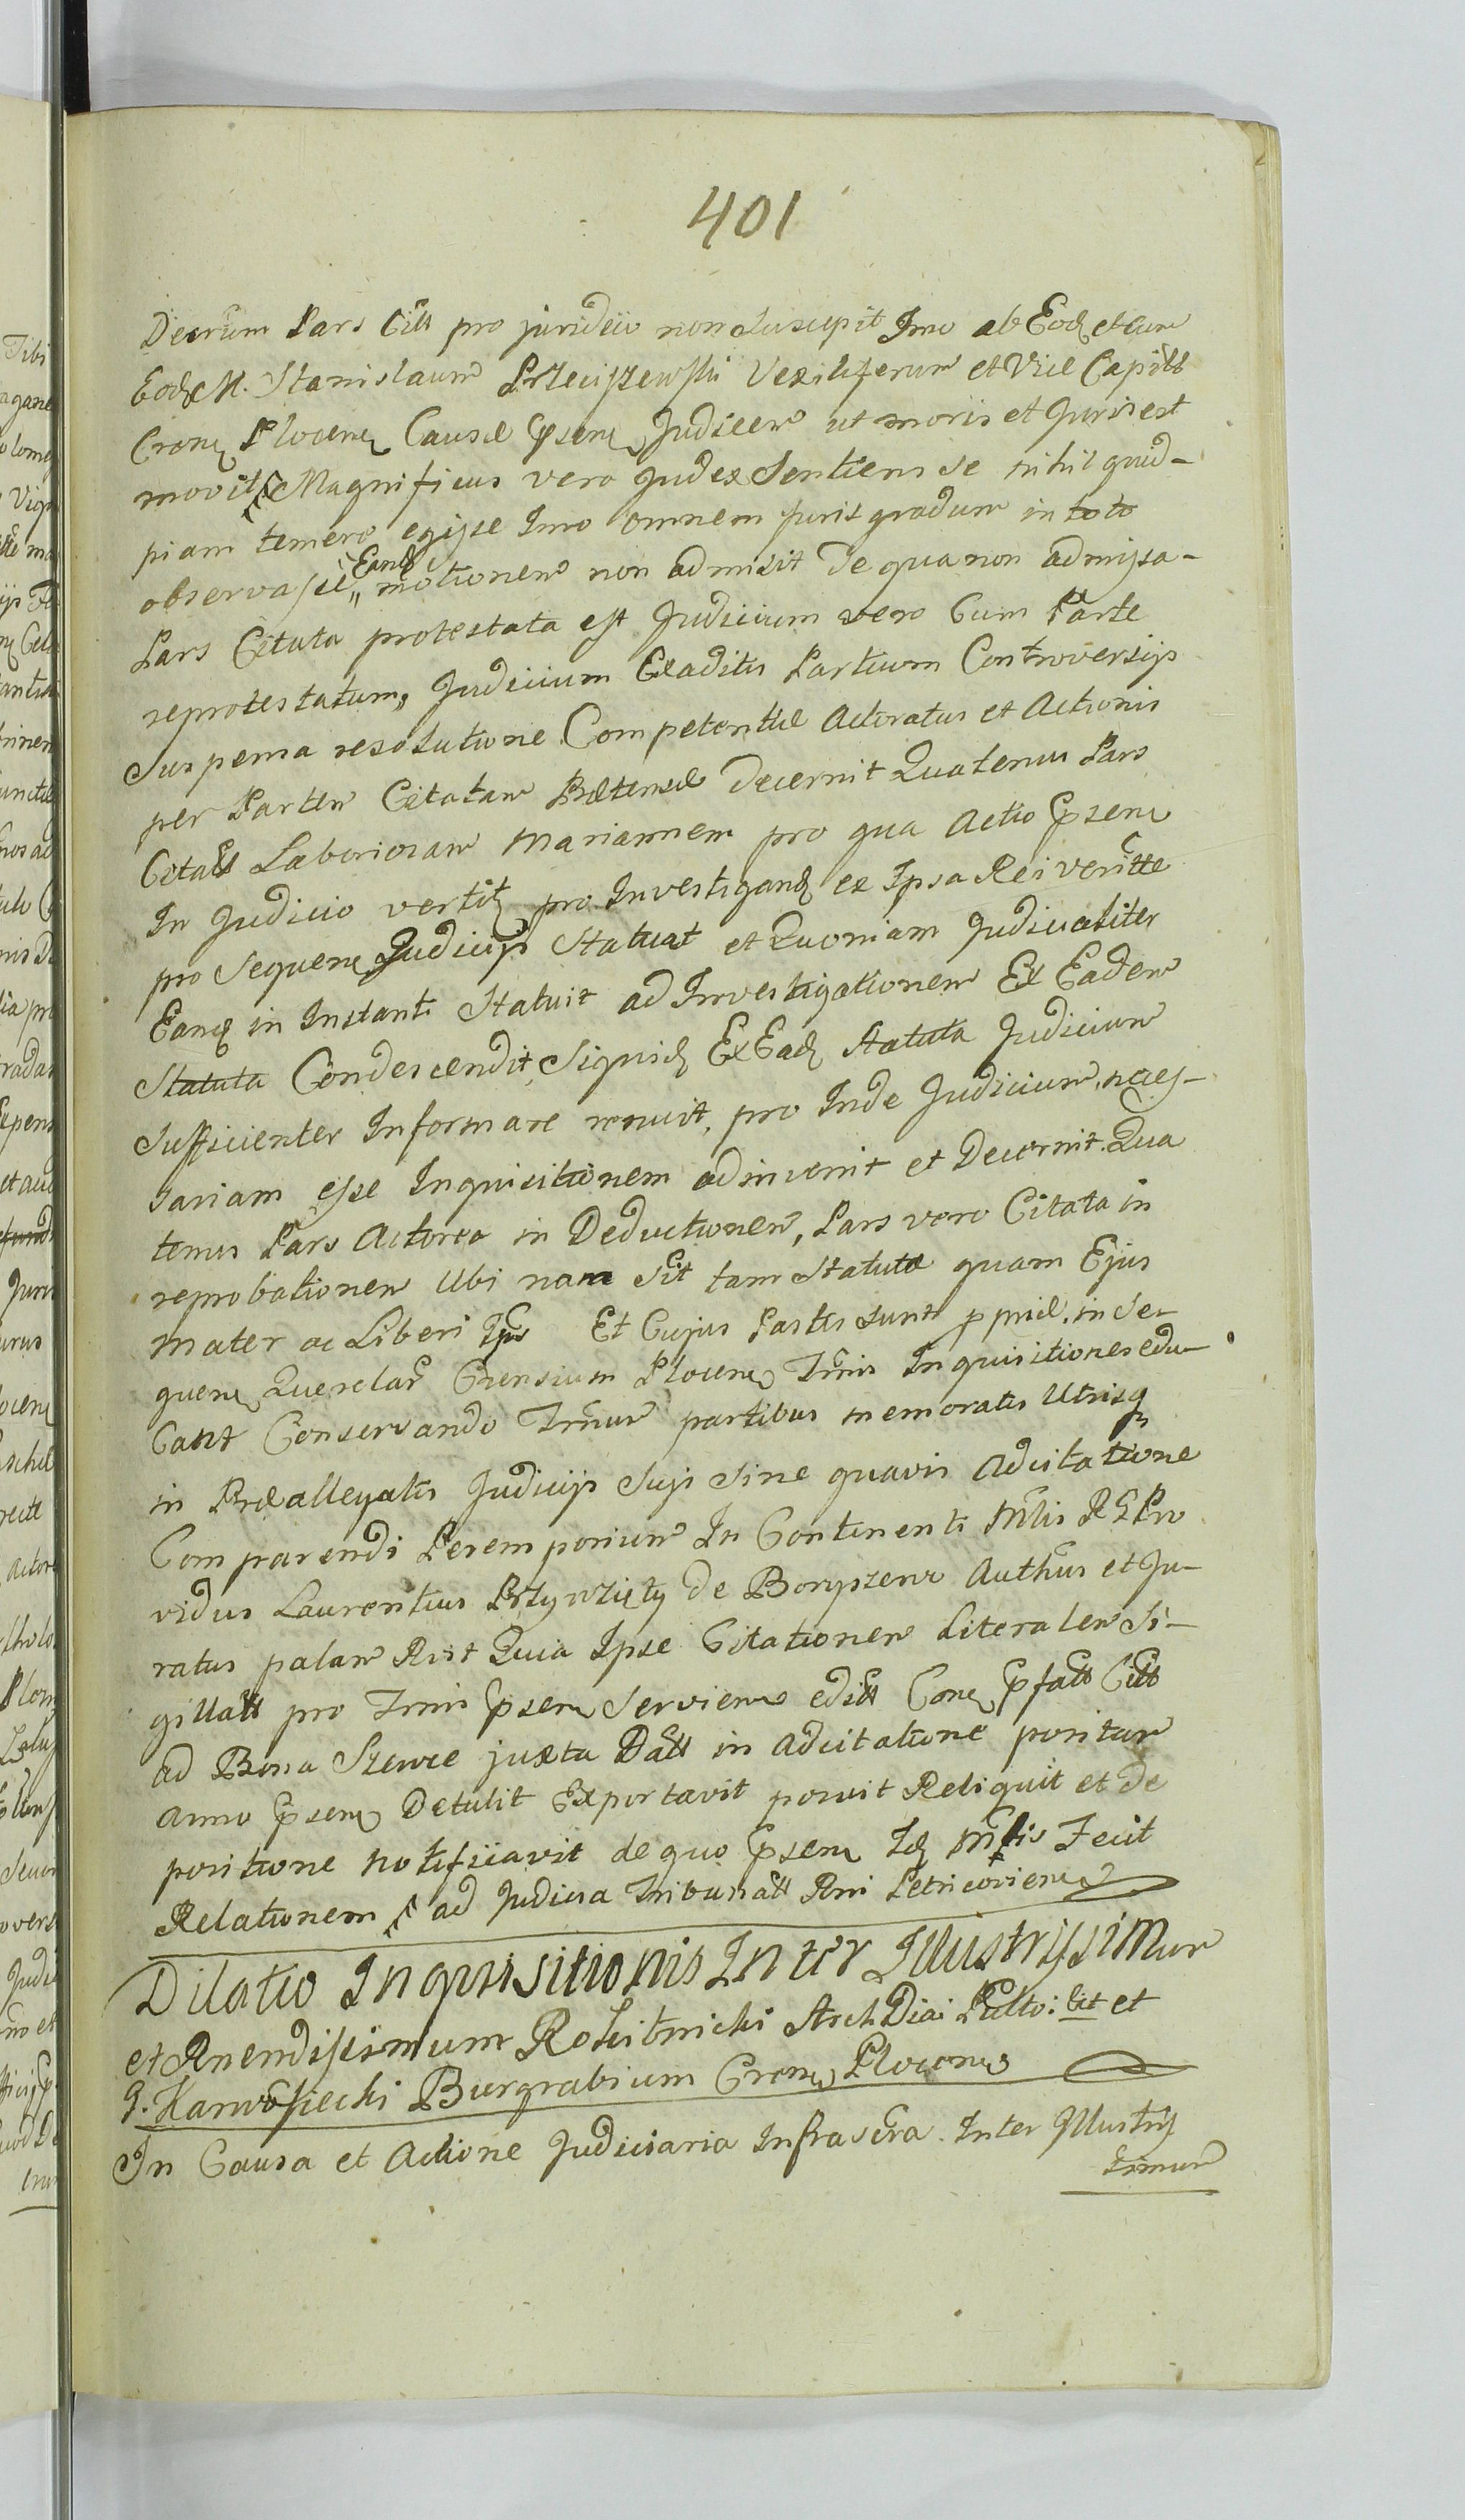 401
Decrum Pars Citt pro juridico non suscepit Imo ab Eod et cum
Eod M. Stanislaum Przeciszewski Vexiliferum et Vice Capitt
Cronę Plocenę Causæ Pñsenę Judicem ut moris et Juris est
movit Magnificus vero Judex Sentiens se nihil quid-
piam temere egisse Imo omnem juris gradum in toto
observasse, Eand motionem non admisit De qua non admissa-
Pars Citata protestata est Judicium vero Cum Parte
reprotestatum, Judicium Exaditis Partium Controversijs
Suspensa resolutione Competentiæ Actoratus et Actionis
per Partem Citatam Prætensæ Decernit Quatenus Pars
Citatt Laboriosam Mariannem pro qua Actio Pñsenę
In Judicio vertitę pro Investigand ex Ipsa Rei veritte
pro Sequenę Judicijs Statuat et Quoniam Judicialiter
Eand in Instanti Statuit ad Investigationem Ex Eadem
Statuta Condescendit, Siquid Ex Ead Statuta Judicium
Sufficienter Informare renuit, pro Inde Judicium, neces-
sariam esse Inquisitionem adinvenit et Decernit. Qua
tenus Pars Actorea in Deductionem, Pars vero Citata in
reprobationem Ubi nam sit tam Statuta quam Ejus
Mater ac Liberi Ips Et Cujus Partis sunt in Se-
quenę Querelar Crensium Plocenę Trñis Inquisitiones edu-
Cant Conservando Trñum partibus memoratis Utrisq
in Præallegatis Judicijs Suis Sine quavis Adcitatione
Comparendi Peremporium In Continenti Mñlis RG Pro
vidus Laurentius Przywzięty de Boryszewo Authus et Ju-
ratus palam Rest Quia Ipse Citationem Literalem Si-
gillatt pro Trñis Pñsenę Servienę editt Conę Pñfatt Citt
ad Bona Szewce juxta Datt in Adcitatione positam
Anno Pñsenę Detulit Exportavit posuit Reliquit et de
positione notificavit de quo Pñsenę Id Mñlis Fecit
Relationem ad Judicia Tribunatt Rñi Petricovienę
Dilatio Inquisitionis Inter Illustrissimum
et Rnendissimum Rościtnicki ArchDiai Pulto: lit et
G. Karwosiecki Burgrabium Cronę Plocenę
In Causa et Actione Judiciaria Infrascra. Inter Illustris
simum